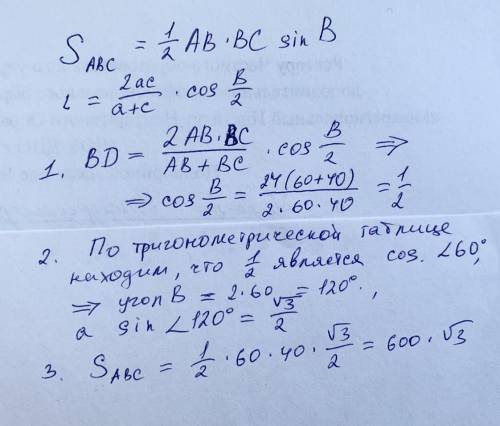 S_ABC = 1/2 AB · BC sin B
L = 2ac/(a+c) · cos B/2
1. BD = 2AB · BC/(AB + BC) · cos B/2 ⇒
⇒ cos B/2 = 24(60+40)/(2·60·40) = 1/2
2. По тригонометрической таблице
находим, что 1/2 является cos. ∠60°,
⇒ угол B = 2·60 = 120°.,
а sin ∠120° = √3/2
3. S_ABC = 1/2 · 60 · 40 · √3/2 = 600 · √3